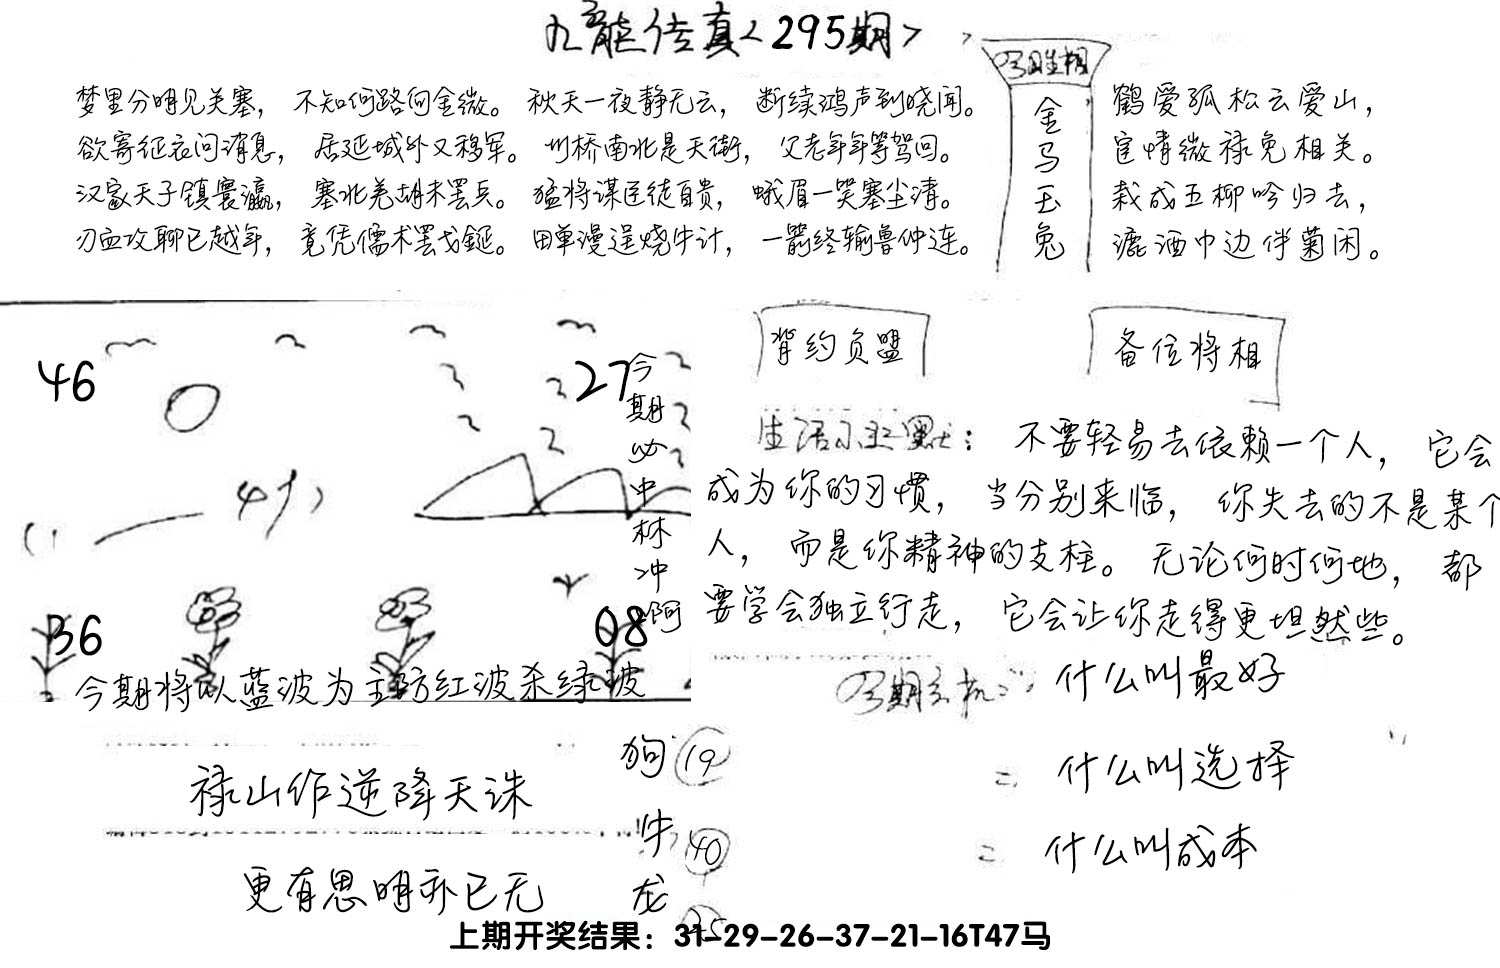 九龍传真<295期>
梦里分明见关塞，不知何路向金微。秋天一夜静无云，断续鸿声到晓闻。
欲寄征衣问消息，居延城外又移军。州桥南北是天街，父老年年等驾回。
汉家天子镇寰瀛，塞北羌胡未罢兵。猛将谋臣徒自贵，蛾眉一笑塞尘清。
刃血攻聊已越年，竟凭儒术罢戈鋋。田单漫逞烧牛计，一箭终输鲁仲连。
金马玉兔
鹤爱孤松云爱山，
宦情微禄免相关。
栽成五柳吟归去，
漉酒巾边伴菊闲。
46
27
36
08
今期必中林冲啊
今期将以蓝波为主防红波杀绿波
背约负盟
备位将相
生活小幽默：不要轻易去依赖一个人，它会
成为你的习惯，当分别来临，你失去的不是某个
人，而是你精神的支柱。无论何时何地，都
要学会独立行走，它会让你走得更坦然些。
什么叫最好
二 什么叫选择
二 什么叫成本
禄山作逆降天诛
更有思明亦已无
狗 19
牛 40
龙 25
上期开奖结果：31-29-26-37-21-16T47马